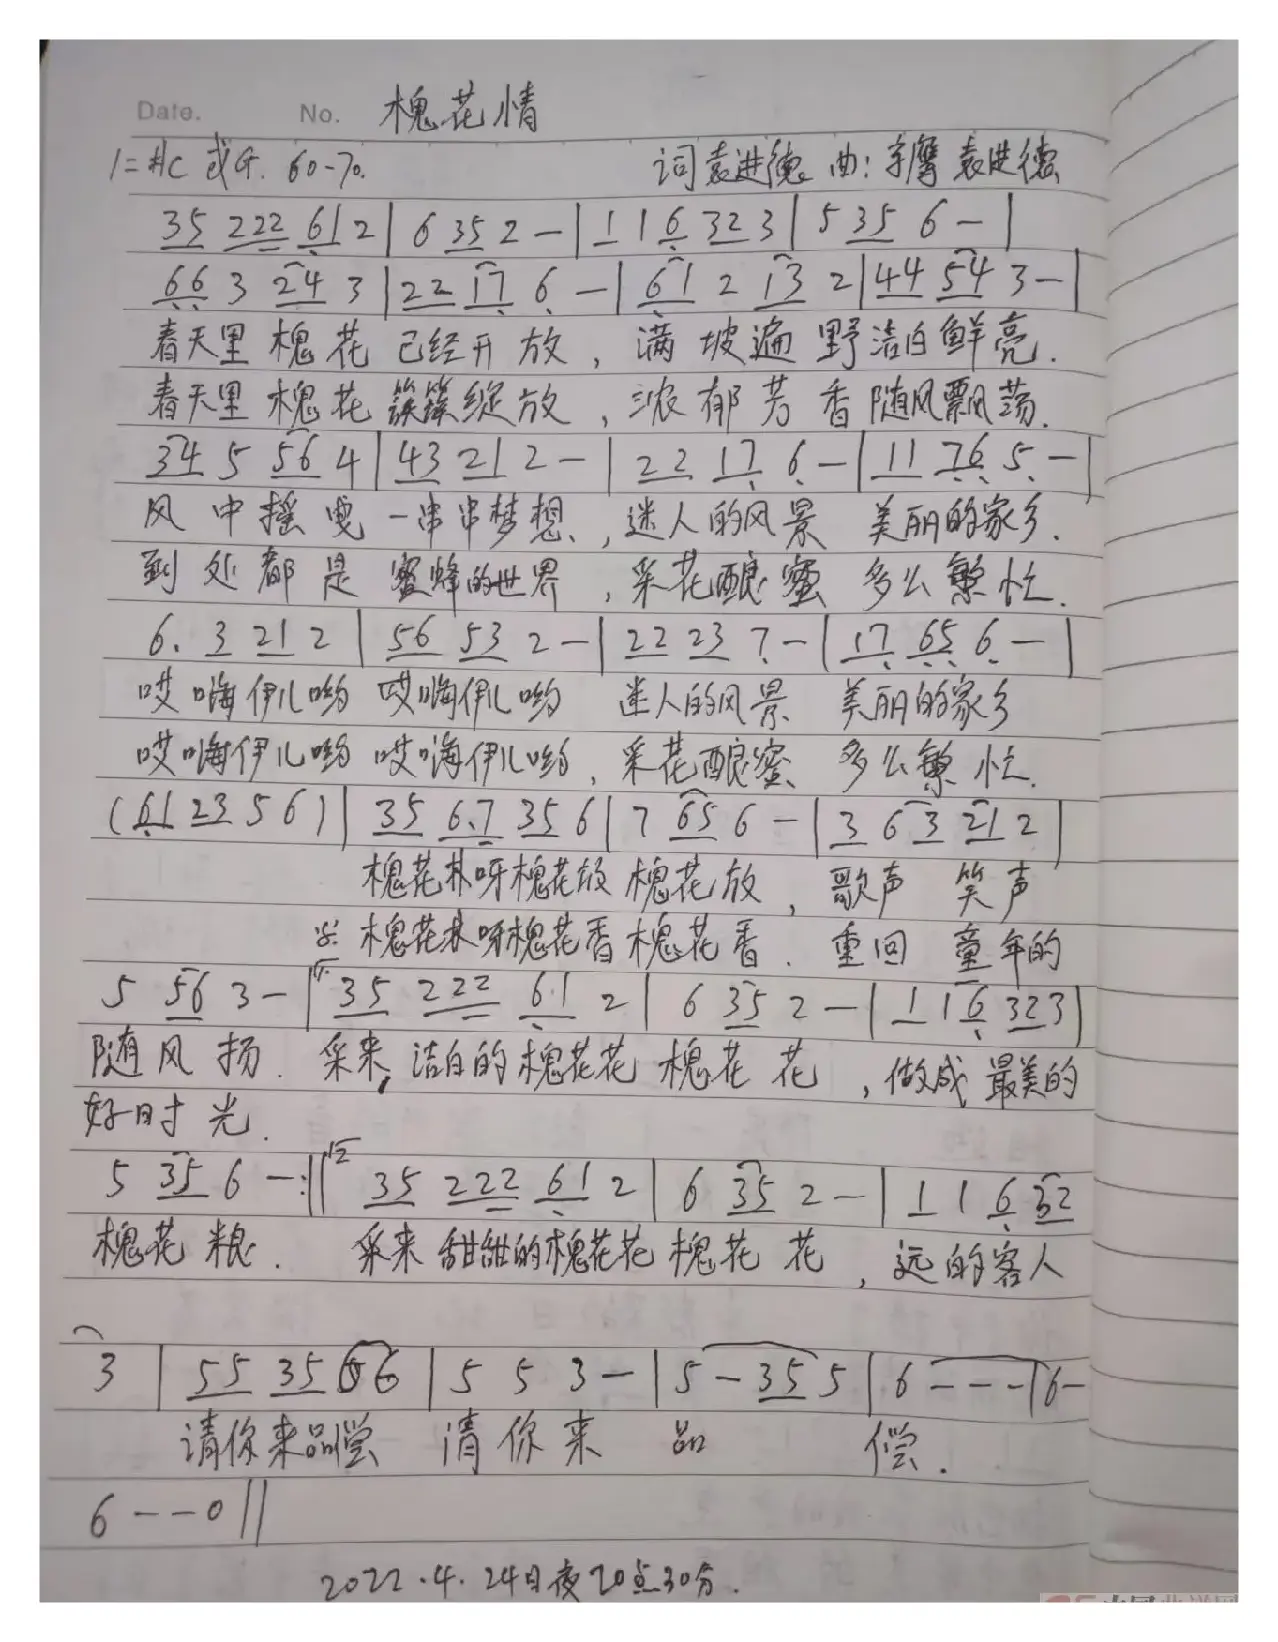 Date. No. 槐花情
1=#C 或G. 60-70. 词袁进德 曲: 袁进德
35 222 61 2 | 6 35 2 - | 1 1 6 32 3 | 5 35 6 - |
66 3 24 3 | 22 17 6 - | 61 2 13 2 | 44 54 3 - |
春天里 槐花 已经开放，满坡遍野洁白鲜亮.
春天里 槐花 簇簇绽放，浓郁芳香随风飘荡.
34 5 56 4 | 43 21 2 - | 22 17 6 - | 11 76 5 - |
风中摇曳一串串梦想、，迷人的风景 美丽的家乡.
到处都是 蜜蜂的世界，采花酿蜜 多么繁忙.
6. 3 21 2 | 56 53 2 - | 22 23 7 - | 17 65 6 - |
哎嗨伊儿哟 哎嗨伊儿哟 迷人的风景 美丽的家乡
哎嗨伊儿哟 哎嗨伊儿哟，采花酿蜜 多么繁忙.
(61 23 5 6) | 35 6.7 35 6 | 7 65 6 - | 3 6 3 21 2 |
槐花林呀槐花放 槐花放，歌声 笑声
槐花林呀槐花香 槐花香. 重回 童年的
5 56 3 - | 1. 35 222 61 2 | 6 35 2 - | 1 1 6 323 |
随风扬. 采来，洁白的槐花花 槐花花，做成最美的
好时光.
5 35 6 - :|| 2 35 222 61 2 | 6 35 2 - | 1 1 6 32
槐花粮. 采来 甜甜的槐花花 槐花花，远的客人
3 | 55 35 66 | 5 5 3 - | 5 - 35 5 | 6 - - - | 6 -
请你来品偿 请你来 品 偿.
6 - - 0 ||
2022.4.24日夜20点30分.